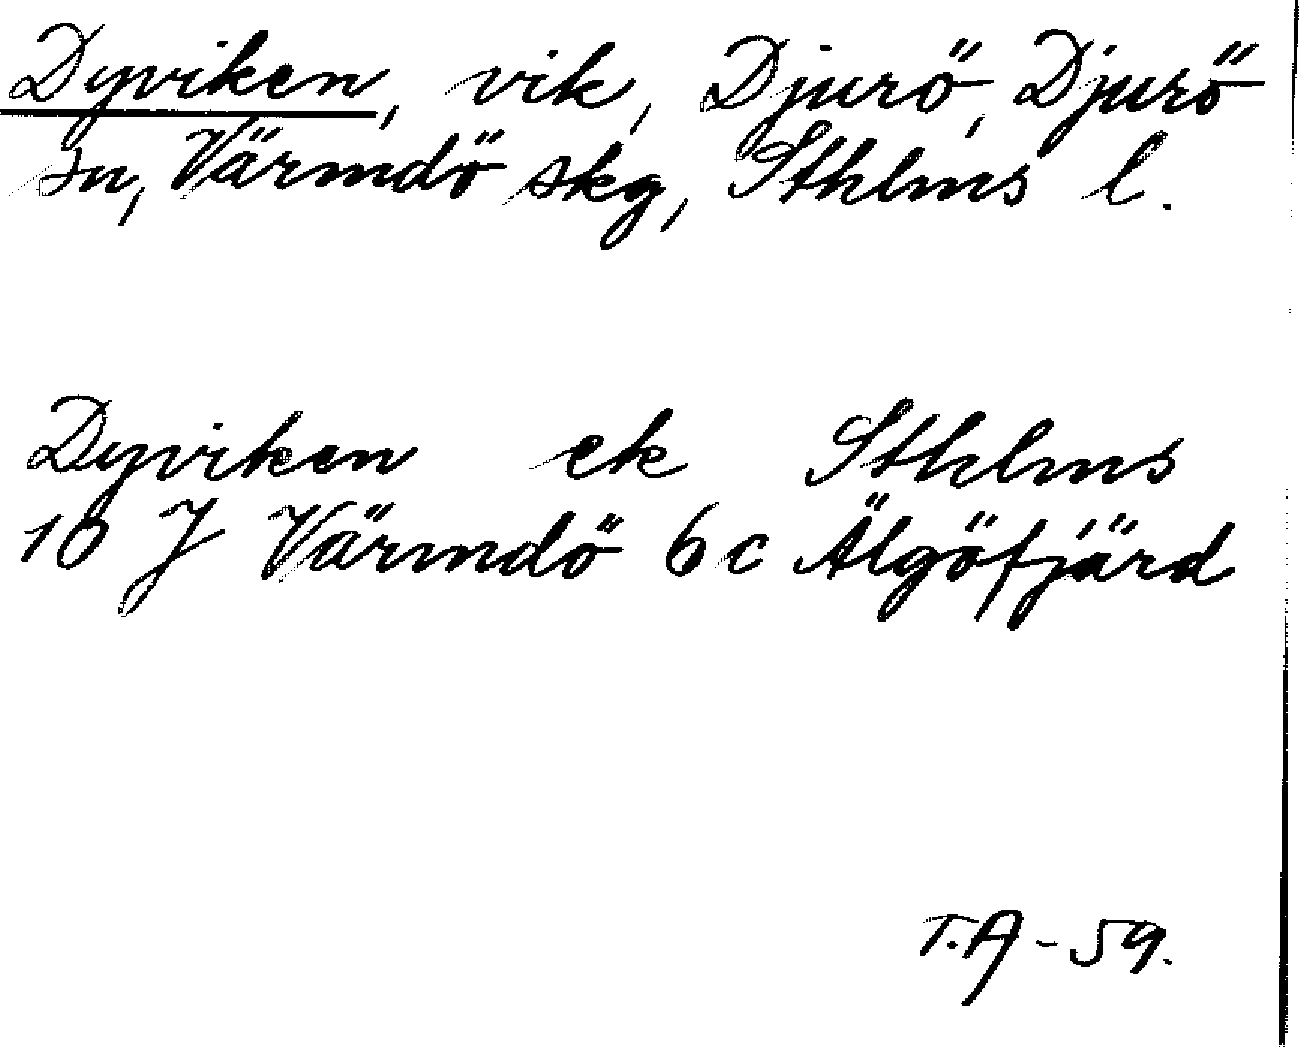 Dyviken, vik, Djurö, Djurö
sn, Värmdö skg, Sthlms l.
Dyviken ek Sthlms
10 J Värmdö 6c Älgöfjärd
T.A - 59.